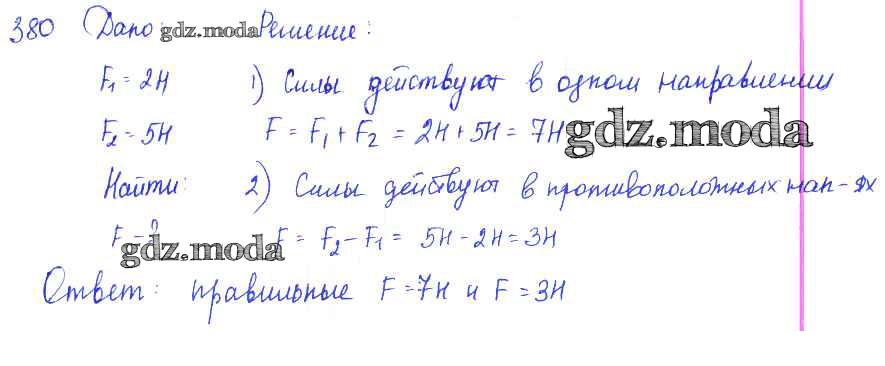 380 Дано gdz.moda Решение:
F₁ = 2Н 1) Силы действуют в одном направлении
F₂ = 5Н F = F₁ + F₂ = 2Н + 5Н = 7Н gdz.moda
Найти: 2) Силы действуют в противоположных нап-ях
F - ? F = F₂ - F₁ = 5Н - 2Н = 3Н
gdz.moda
Ответ: правильные F = 7Н и F = 3Н